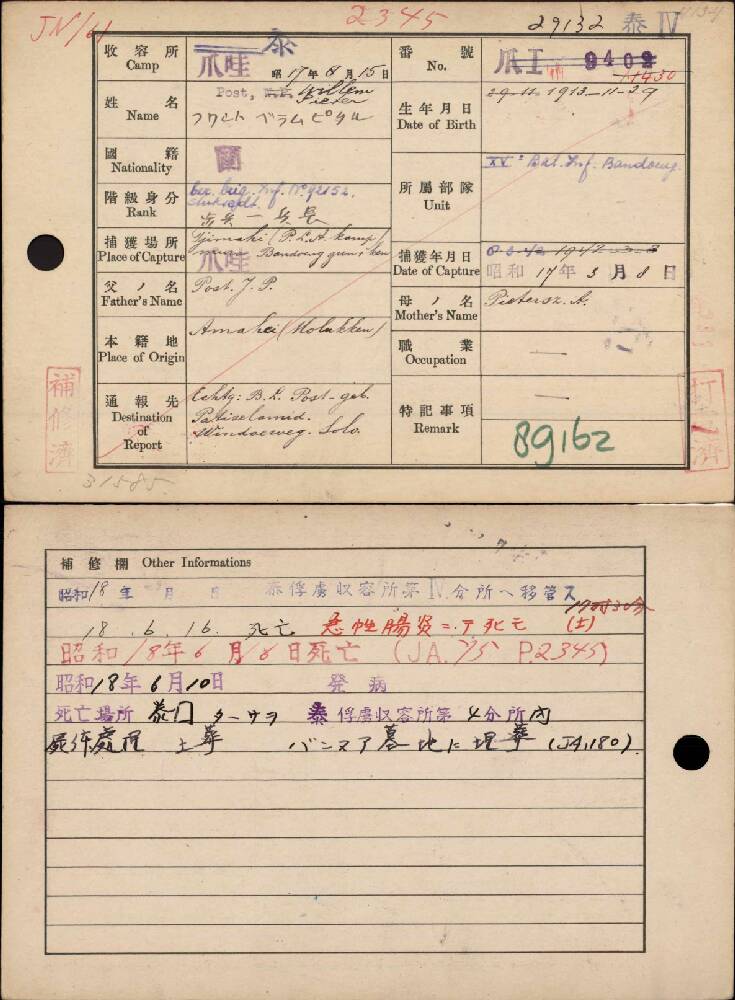 JN/61
2345
29132 泰 IV
収容所 Camp 爪哇 泰 昭 17年8月15日
番號 No. 爪I 9402 11430
姓名 Name Post, Willem Pieter
フワント ベラムピタル
生年月日 Date of Birth 29-11-1913-11-29
國籍 Nationality 蘭
階級身分 Rank ber. brig. inf. № 92152.
歩兵一兵長
所屬部隊 Unit XVe Bat. Inf. Bandoeng.
捕獲場所 Place of Capture Tjimahi (P.L.A. kamp)
爪哇 Bandoeng
捕獲年月日 Date of Capture 8-3-42 1942-3-8
昭和 17年3月8日
父ノ名 Father's Name Post. J. P.
母ノ名 Mother's Name Pietersz. A.
本籍地 Place of Origin Amahei (Molukken)
職業 Occupation —
通報先 Destination of Report Echtg: B. L. Post-geb.
Windoeweg. Solo.
特記事項 Remark —
89162
補修濟
打濟
31585
補修欄 Other Informations
昭和18年 月 日 泰俘虜収容所第IV分所ヘ移管ス
18.6.16. 死亡 急性腸炎ニテ死亡 (土) 17時30分
昭和18年6月16日死亡 (JA.75 P.2345)
昭和18年6月10日 発病
死亡場所 泰国 ターサヲ 泰俘虜収容所第4分所内
屍体處理 土葬 バンヌア墓地に埋葬 (JA.180)